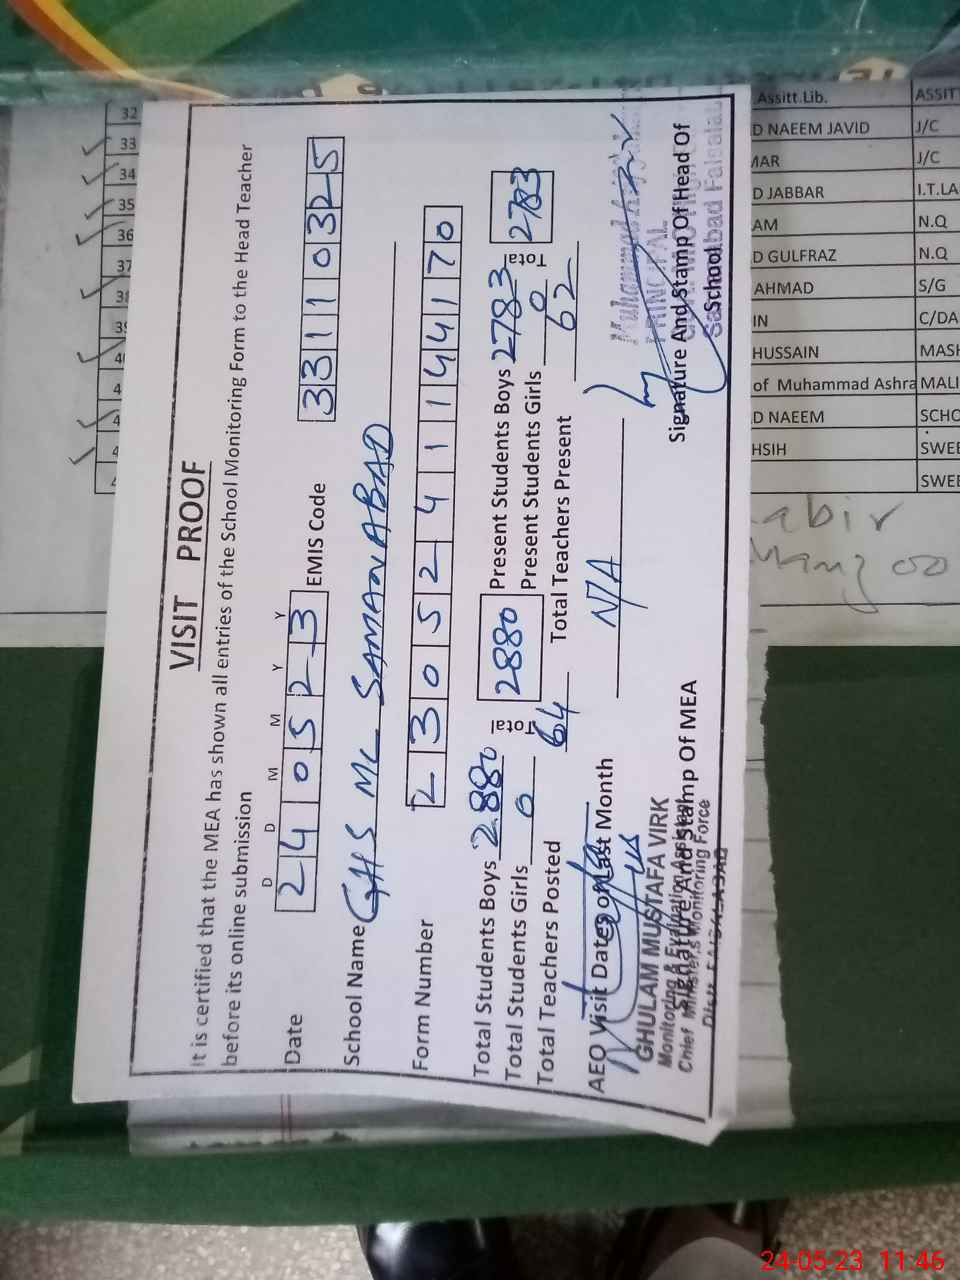 VISIT PROOF
It is certified that the MEA has shown all entries of the School Monitoring Form to the Head Teacher
before its online submission
D D M M Y Y
Date 24 05 23 EMIS Code 33110325
School Name GHS MC SAMANABAD
Form Number 2305241144170
Total Students Boys 2880 Total 2880 Present Students Boys 2783 Total 2783
Total Students Girls 0 Present Students Girls 0
Total Teachers Posted 64 Total Teachers Present 62
AEO Visit Dates of Last Month N/A
GHULAM MUSTAFA VIRK
Monitoring & Evaluation Assistant
Signature And Stamp Of MEA
Chief Minister's Monitoring Force
Distt. FAISALABAD
Muhammad
PRINCIPAL
Signature And Stamp Of Head Of
School
Samanabad Faisalabad
32 Assitt.Lib. ASSIT
33 D NAEEM JAVID J/C
34 MAR J/C
35 D JABBAR I.T.LA
36 AM N.Q
37 D GULFRAZ N.Q
38 AHMAD S/G
39 IN C/DA
40 HUSSAIN MASH
4 of Muhammad Ashra MALI
4 D NAEEM SCHO
4 HSIH SWEE
4 SWEE
abir
Manzoo
24-05-23 11:46